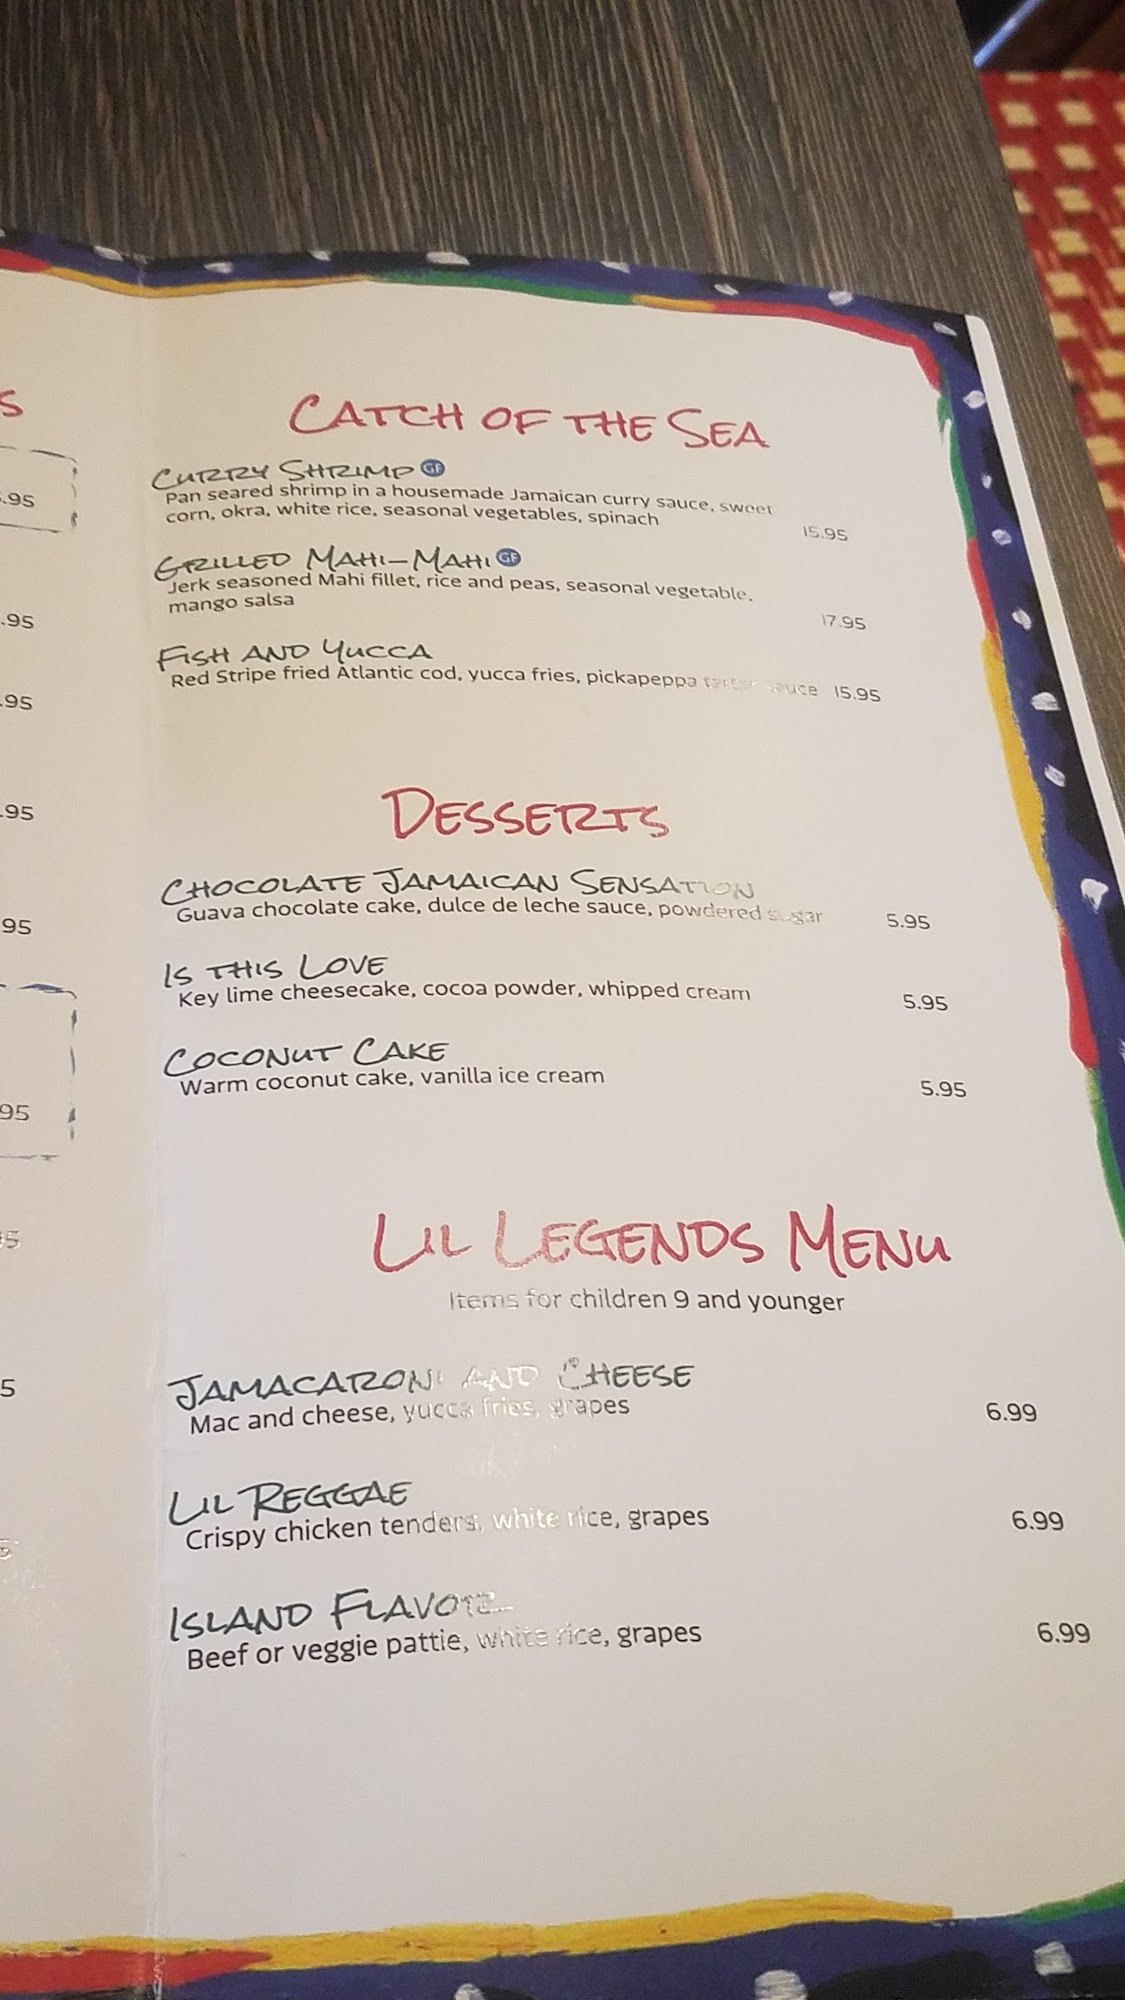 Catch of the Sea
Curry Shrimp GF
Pan seared shrimp in a housemade Jamaican curry sauce, sweet
corn, okra, white rice, seasonal vegetables, spinach
15.95
Grilled Mahi-Mahi GF
Jerk seasoned Mahi fillet, rice and peas, seasonal vegetable,
mango salsa
17.95
Fish and Yucca
Red Stripe fried Atlantic cod, yucca fries, pickapeppa tartar sauce 15.95
Desserts
Chocolate Jamaican Sensation
Guava chocolate cake, dulce de leche sauce, powdered sugar 5.95
Is this Love
Key lime cheesecake, cocoa powder, whipped cream 5.95
Coconut Cake
Warm coconut cake, vanilla ice cream 5.95
Lil Legends Menu
Items for children 9 and younger
Jamacaroni and Cheese
Mac and cheese, yucca fries, grapes 6.99
Lil Reggae
Crispy chicken tenders, white rice, grapes 6.99
Island Flavor
Beef or veggie pattie, white rice, grapes 6.99